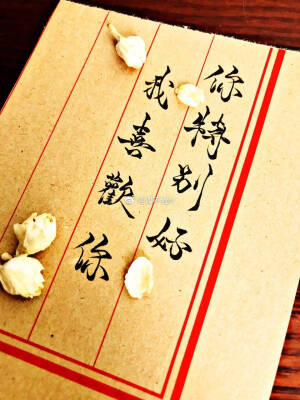 你特别好
我喜歡你